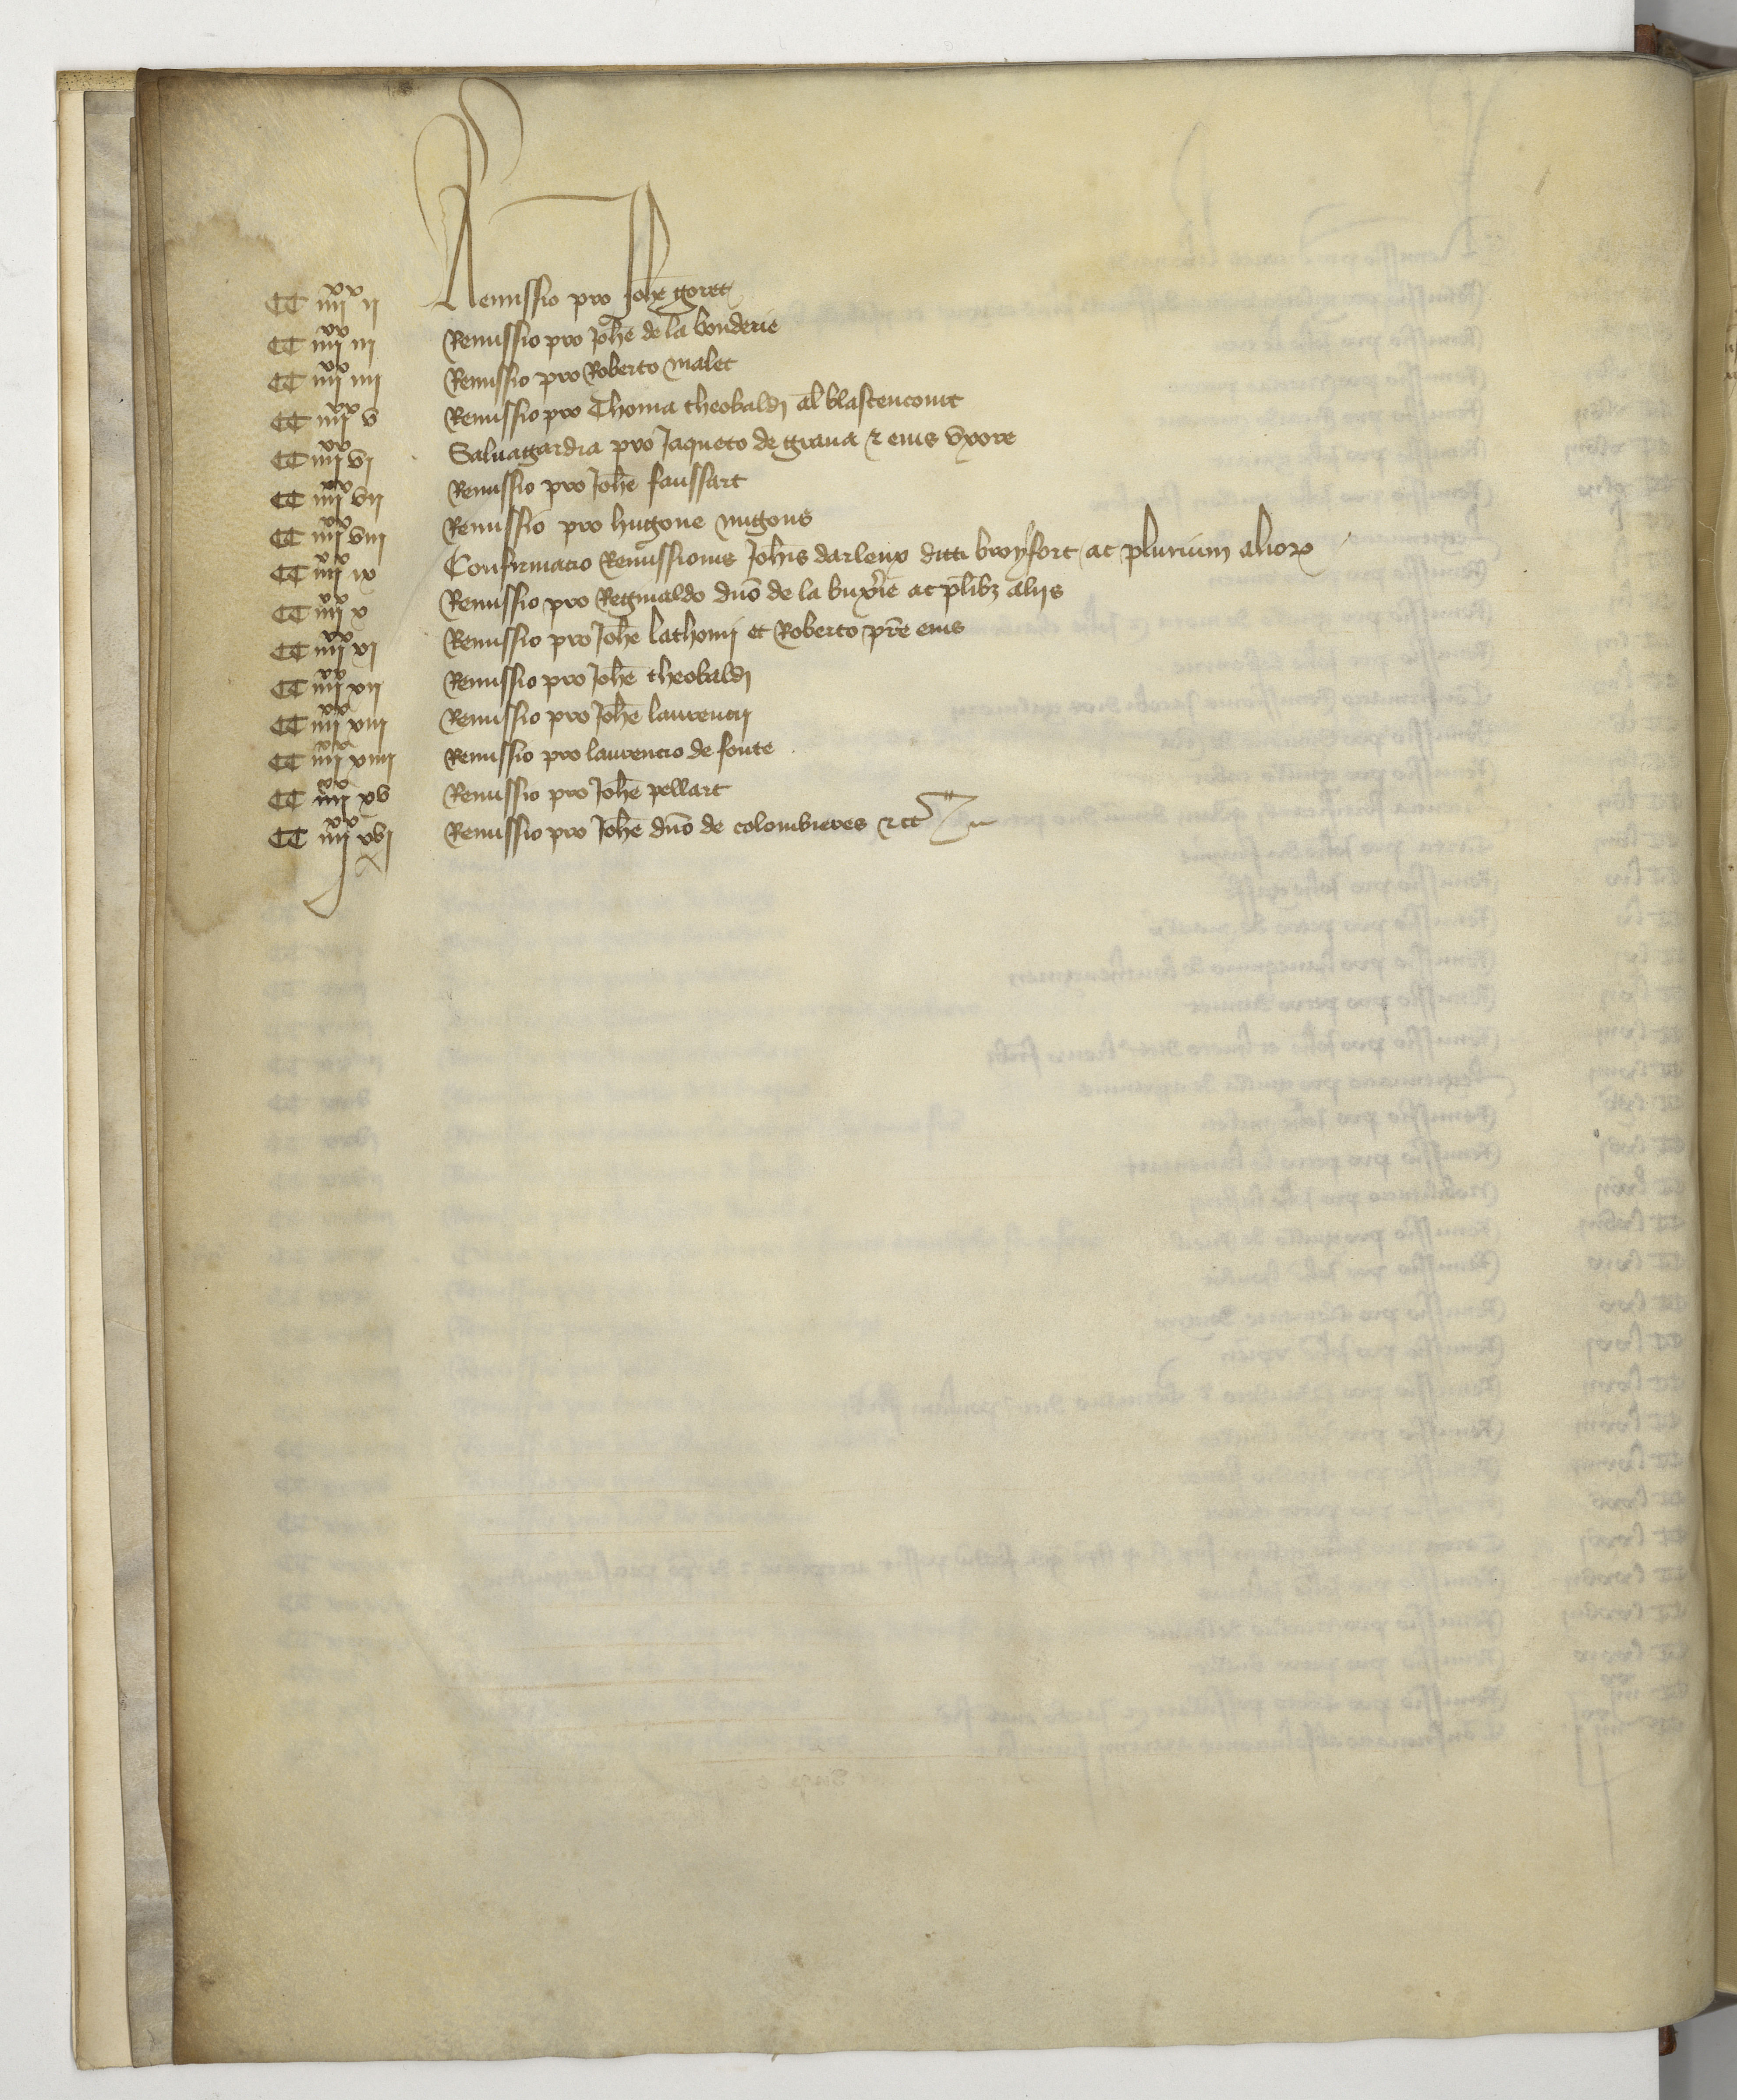 CC iiii xx ii Remissio pro Johe goret
CC iiii xx iii Remissio pro Johe de la bonderie
CC iiii xx iiii Remissio pro Roberto malet
CC iiii xx v Remissio pro Thoma theobaldi al blastencout
CC iiii xx vi Saluagardia pro Jaqueto de graua & eius vxore
CC iiii xx vii Remissio pro Johe faussart
CC iiii xx viii Remissio pro hugone
CC iiii xx ix Confirmacio Remissionis Johis darleux dicti broyfort ac plurium alior
CC iiii xx x Remissio pro Reginaldo dno de la ac plibz aliis
CC iiii xx xi Remissio pro Johe lathomi et Roberto pre eius
CC iiii xx xii Remissio pro Johe theobaldi
CC iiii xx xiii Remissio pro Johe laurencii
CC iiii xx xiiii Remissio pro laurencio de fonte
CC iiii xx xv Remissio pro Johe pellart
CC iiii xx xvi Remissio pro Johe dno de colombieres &ct